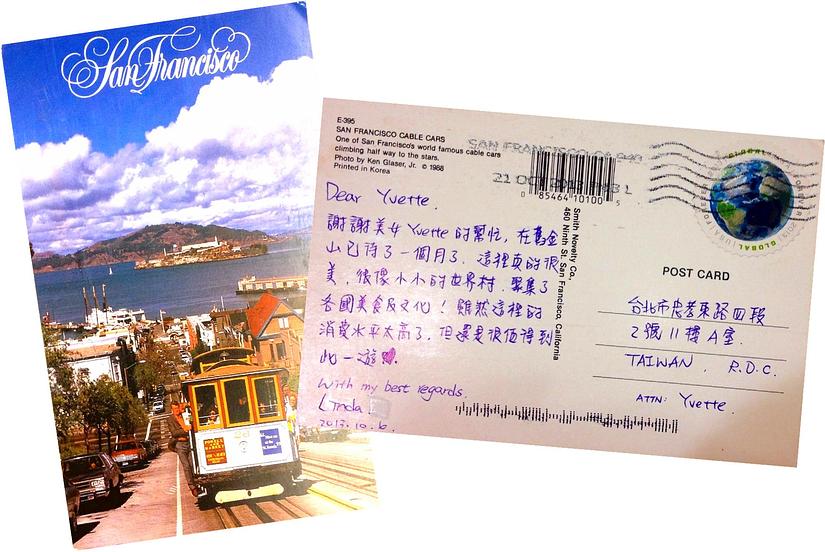 San Francisco
E-395
SAN FRANCISCO CABLE CARS
One of San Francisco's world famous cable cars
climbing half way to the stars.
Photo by Ken Glaser, Jr. © 1988
Printed in Korea
SAN FRANCISCO CA 940
21 OCT
0 85464 10100 5
Smith Novelty Co.,
460 Ninth St. San Francisco, California
Dear Yvette.
謝謝美女 Yvette 的幫忙,在舊金
山已待了一個月了.這裡真的很
美,很像小小的世界村.聚集了
各國美食及文化!雖然這裡的
消費水平太高了,但還是很值得到
此一遊
With my best regards.
Linda
2013.10.6.
GLOBAL
GLOBAL
POST CARD
台北市忠孝東路四段
2號11樓A室
TAIWAN, R.O.C.
ATTN: Yvette.